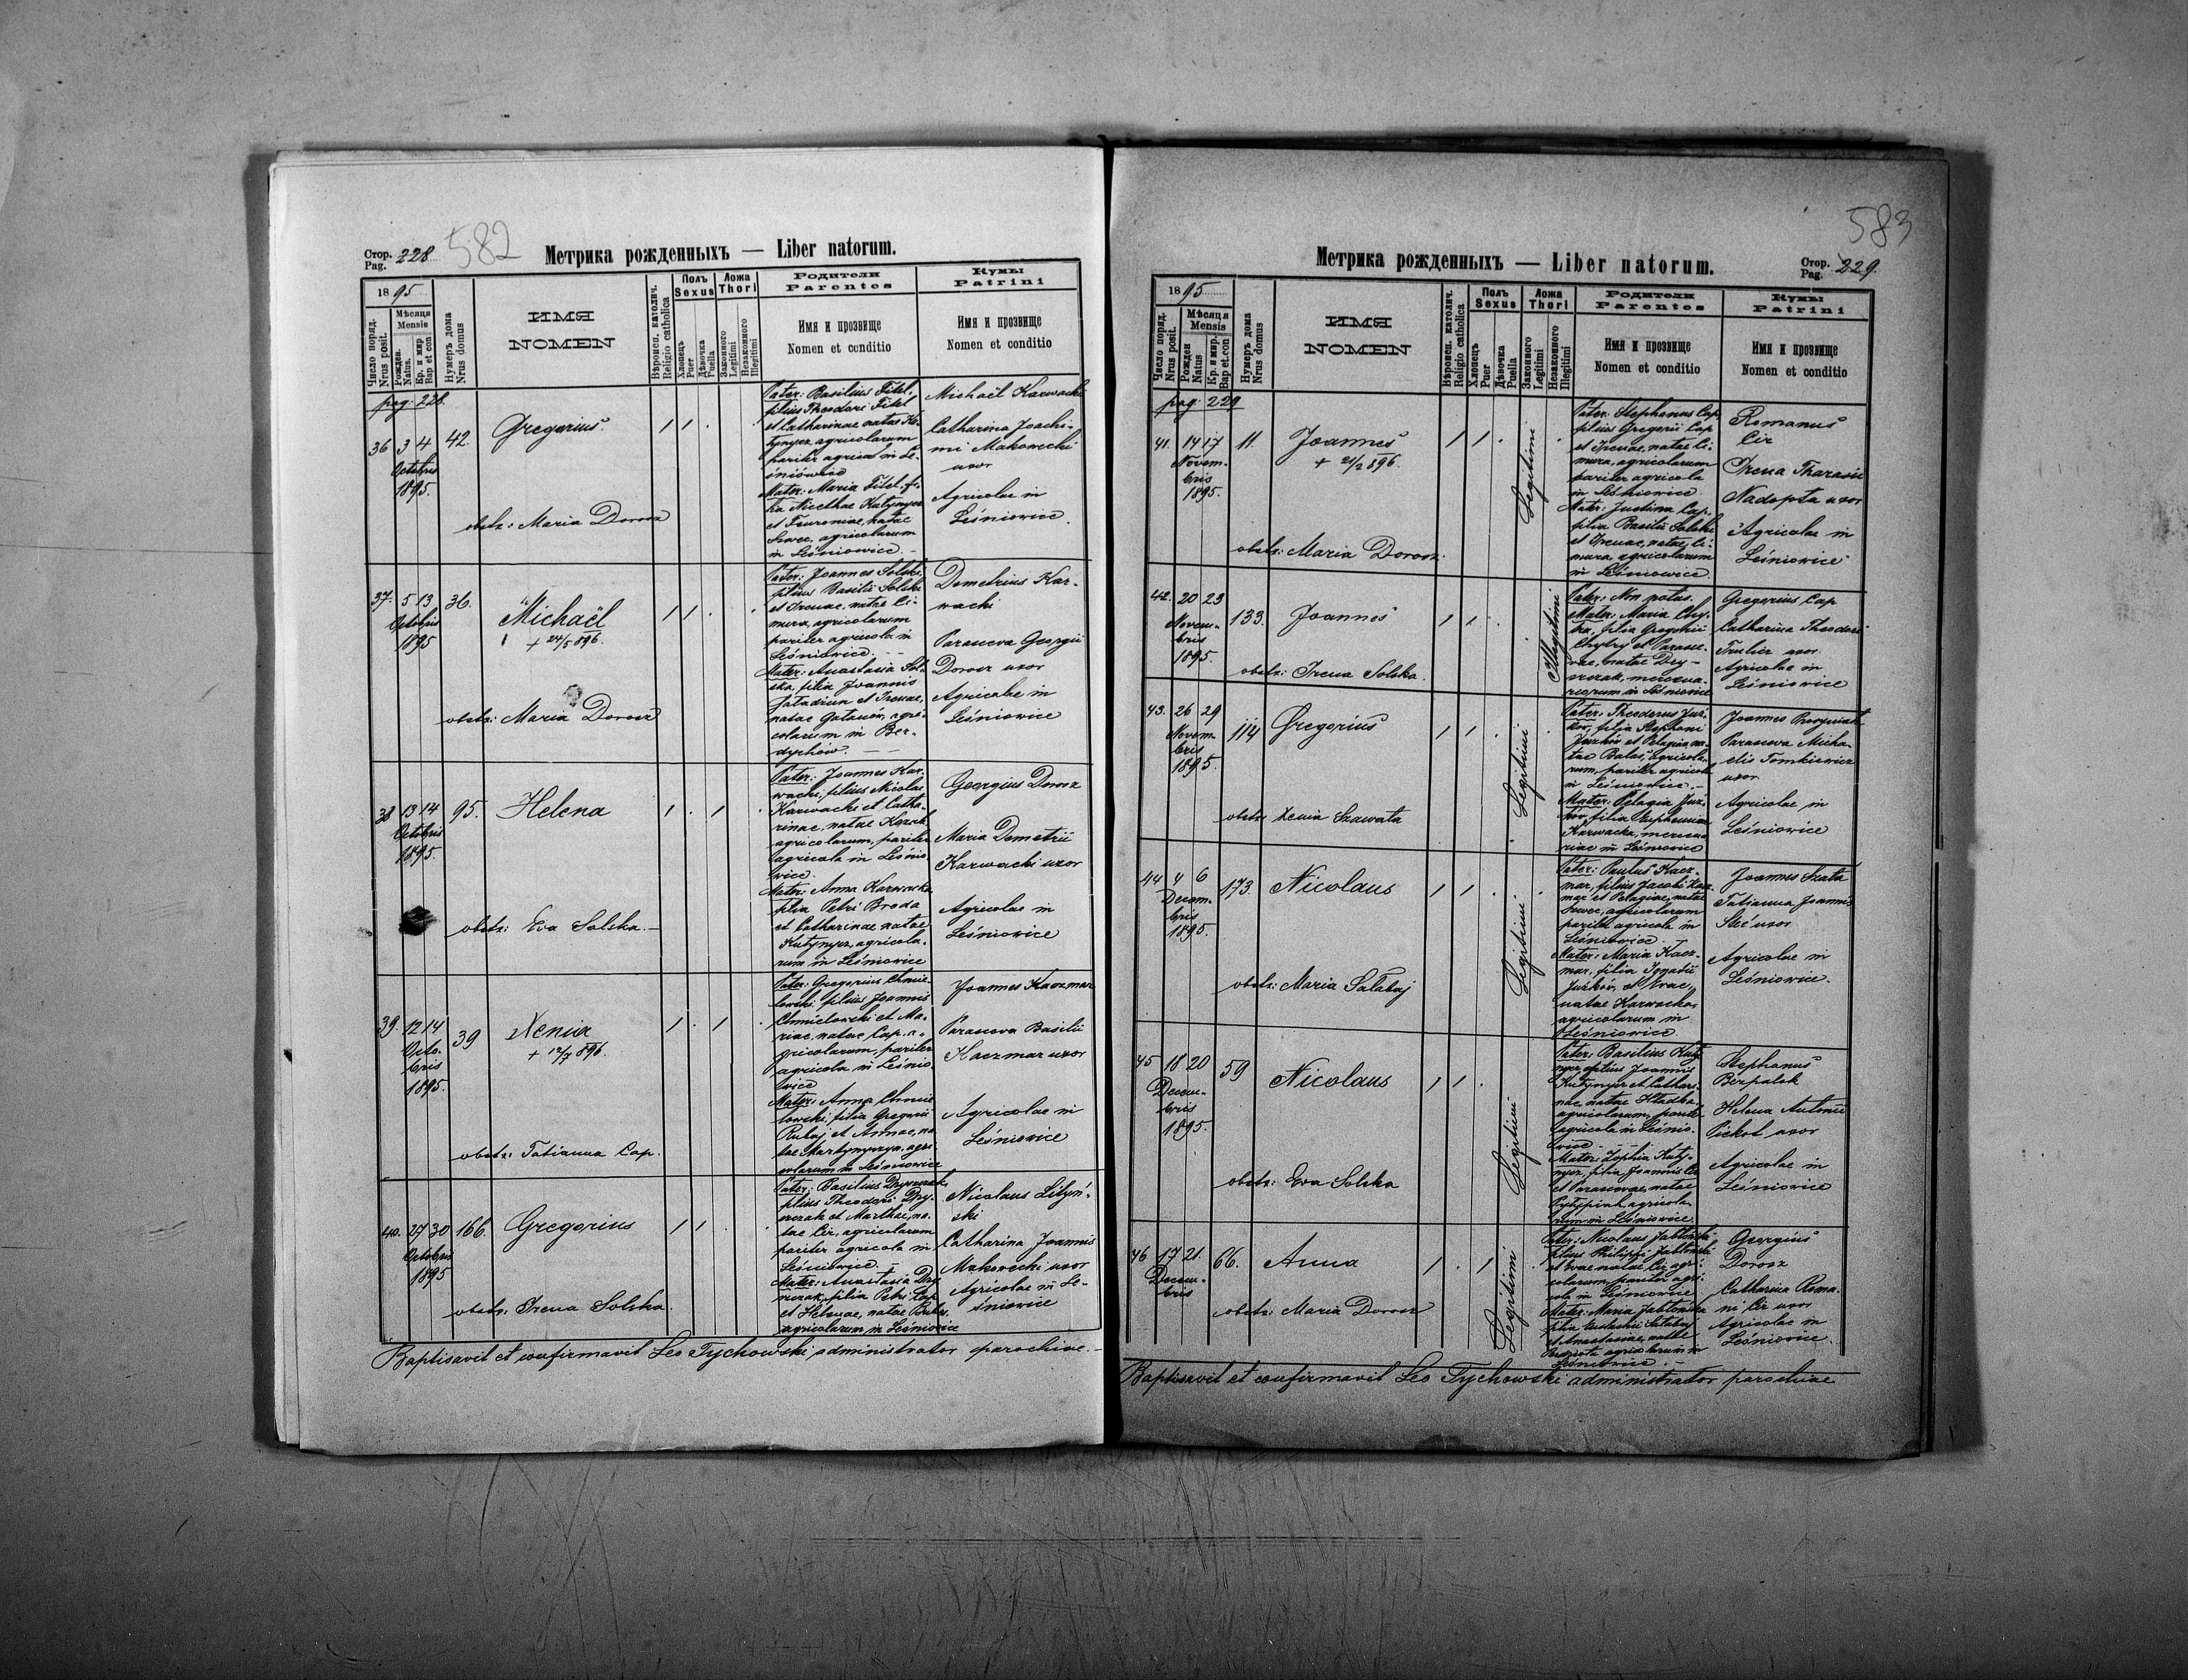 Стор. Pag. 228
582
Метрика рожденныхъ — Liber natorum.
1895
Число поряд. Nrus posit.
Мѣсяця Mensis
Рожден. Natus.
Кр. и мир Bap et con
Нумеръ дома Nrus domus
ИМЯ
NOMEN
Вѣроисп. католич. Religio catholica
Полъ Sexus
Хлопець Puer
Дѣвочка Puella
Ложа Thori
Законного Legitimi
Незаконного Illegitimi
Родители
Parentes
Имя и прозвище
Nomen et conditio
Кумы
Patrini
Имя и прозвище
Nomen et conditio
pag: 228.
36 3 4 42. Gregorius.
Octobris
1895.
obstr: Maria Dorosz
Pater: Basilius Fitel,
filius Theodori Fitel
et Catharinae natae Ku-
tynycz agricolarum
pariter agricola in Le-
śniowice
Mater: Maria Fitel, fi-
lia Nicethae Kutynycz
et Feuroniae, natae
Szwec, agricolarum
in Leśniowice. –
Michaël Karwacki
Catharina Joachi-
mi Makorecki
uxor
Agricolae in
Leśniowice.
37. 5 13 36. Michaël
Octobris + 24/5 896.
1895
obstr: Maria Dorosz
Pater: Joannes Solski,
filius Basilii Solski
et Irenae, natae Ci-
mura, agricolarum
pariter agricola in
Leśniowice. –
Mater: Anastasia Sol-
ska, filia Joannis
et Irenae,
natae agri-
colarum in Ber-
dychów. –
Demetrius Kar-
wacki
Parasceva Georgii
Dorosz uxor
Agricolae in
Leśniowice
38 13 14 95. Helena
Octobris
1895.
obstr: Eva Solska. –
Pater: Joannes Kar-
wacki, filius Nicolai
Karwacki et Catha-
rinae, natae Kozak
agricolarum, pariter
agricola in Leśnio-
wice.
Mater: Anna Karwacka
filia Petri Broda
et Catharinae natae
Kutynycz, agricola-
rum in Leśniowice
Georgius Dorosz
Maria Demetrii
Karwacki uxor
Agricolae in
Leśniowice
39. 12 14 39 Xenia
Octo- + 12/7 896.
bris
1895.
obstr: Tatianna Cap.
Pater: Gregorius Chmie-
lowski filius Joannis
Chmielowski et Ma-
riae, natae Cap, a-
gricolarum, pariter
agricola in Leśnio-
wice
Mater: Anna Chmie-
lowski, filia Gregorii
et Annae, na-
tae Martynyszyn, agri-
colarum in Leśniowice
Joannes Kaczmar
Parasceva Basilii
Kaczmar uxor
Agricolae in
Leśniowice
40. 27 30 166. Gregorius
Octobris
1895
obstr: Irena Solska.
Pater: Basilius
filius Theodori
et Marthae, na-
tae Cir, agricolarum
pariter agricola in
Leśniowice. –
Mater: Anastasia
filia Petri Cap
et Helenae, natae
agricolarum in Leśniowice
Nicolaus Lityń-
ski
Catharina Joannis
Makorecki uxor
Agricolae in Le-
śniowice
Baptisavit et confirmavit Leo Tychowski, administrator parochiae. –
583
Метрика рожденныхъ — Liber natorum.
Стор. Pag. 229.
1895
Число поряд. Nrus posit.
Мѣсяця Mensis
Рожден Natus
Кр. и мир. Bap et con
Нумеръ дома Nrus domus
ИМЯ
NOMEN
Вѣроисп. католич. Religio catholica
Полъ Sexus
Хлопець Puer
Дѣвочка Puella
Ложа Thori
Законного Legitimi
Незаконного Illegitimi
Родители
Parentes
Имя и прозвище
Nomen et conditio
Кумы
Patrini
Имя и прозвище
Nomen et conditio
pag: 229
41. 14 17 11. Joannes
Novem- + 21/2 896.
bris
1895.
obstr: Maria Dorosz.
Legitimi
Pater: Stephanus Cap
filius Gregorii Cap
et Irenae, natae Ci-
mura, agricolarum
pariter agricola
in Leśniowice
Mater: Justina Cap,
filia Basilii Solski
et Irenae, natae Ci-
mura, agricolarum
in Leśniowice
Romanus
Cir
Irena Tharasii
Nadopta uxor
Agricolae in
Leśniowice
42. 20 23 133. Joannes
Novem-
bris
1895.
obstr: Irena Solska.
Illegitimi
Pater: Non notus.
Mater: Maria Chy-
tra, filia Gregorii
Chytry et Parasce-
vae, natae Dry-
mercena-
riorum in Leśniowice
Gregorius Cap
Catharina Theodori
uxor
Agricolae in
Leśniowice
43. 26 29 114 Gregorius
Novem-
bris
1895.
obstr: Xenia Szawata
Legitimi
Pater: Theodorus Już-
ków, filius Stephani
Jużków et Pelagiae na-
tae Balas, agricola-
rum, pariter agricola
in Leśniowice. –
Mater: Pelagia Już-
ków, filia Euphemiae
Karwacka, mercena-
riae in Leśniowice
Joannes
Parasceva Micha-
elis Tomkiewicz
uxor
Agricolae in
Leśniowice
44 4 6 173. Nicolaus
Decem-
bris
1895.
obstr: Maria Sałabaj
Legitimi
Pater: Paulus Kacz-
mar, filius Jacobi Kacz-
mar et Pelagiae, natae
Szwec, agricolarum
pariter agricola in
Leśniowice
Mater: Maria Kacz-
mar, filia Ignatii
Jużków, et Evae,
natae Karwacka,
agricolarum in
Leśniowice.
Joannes Szata
Tatianna Joannis
Steć uxor
Agricolae in
Leśniowice.
45 18 20 59 Nicolaus
Decem-
bris
1895.
obstr: Eva Solska
Legitimi
Pater: Basilius Kuty-
nycz filius Joannis
Kutynycz et Cathari-
nae, natae Hladka,
agricolarum, pariter
agricola in Leśnio-
wice. –
Mater: Zophia Kuty-
nycz, filia Joannis Cir
et Parascevae, natae
agricola-
rum in Leśniowice.
Stephanus
Bezpalok
Helena Antonii
Piekot uxor
Agricolae in
Leśniowice
46 17 21. 66. Anna
Decem-
bris
obstr: Maria Dorosz
Legitimi
Pater: Nicolaus Jabłoński
filius Philippi Jabłoński
et Evae natae Cir agri-
colarum, pariter agri-
cola in Leśniowice
Mater: Maria Jabłońska
filia Eustachii Sałabaj
et Anastasiae, natae
agricolarum in
Leśniowice. –
Georgius
Dorosz
Catharina Roma-
ni Cir uxor
Agricolae in
Leśniowice.
Baptisavit et confirmavit Leo Tychowski administrator parochiae